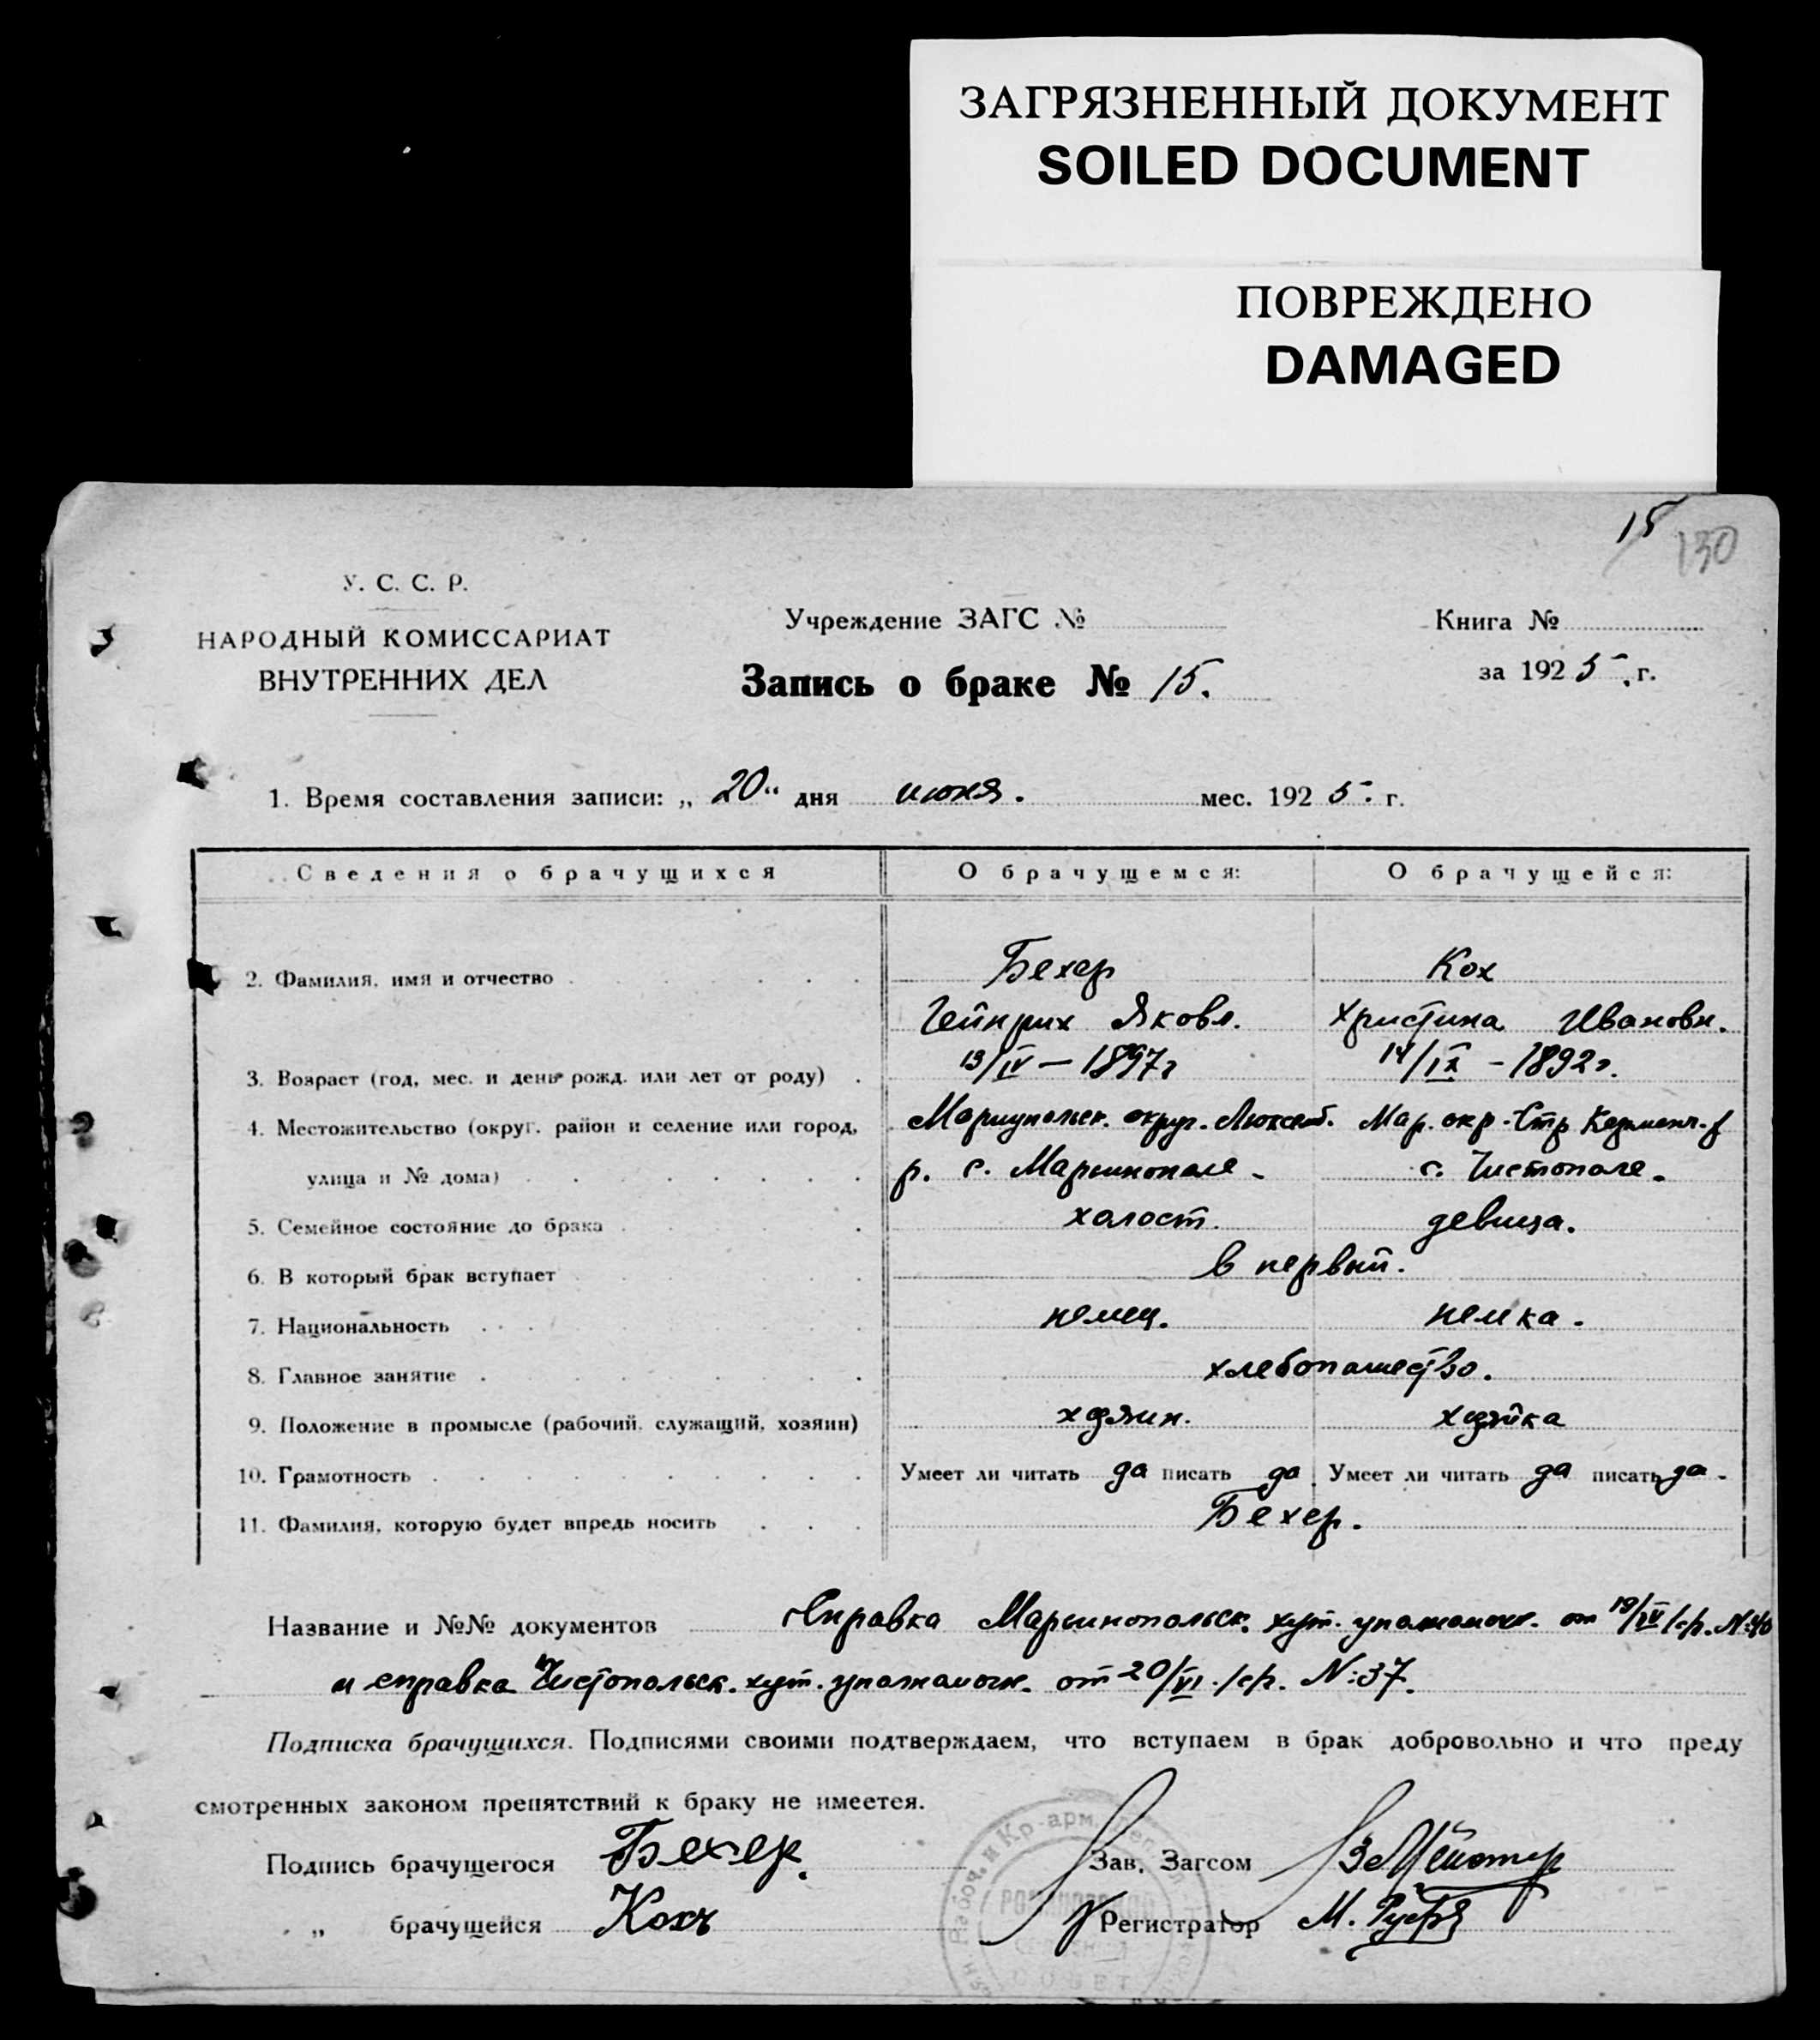 ЗАГРЯЗНЕННЫЙ ДОКУМЕНТ
SOILED DOCUMENT
ПОВРЕЖДЕНО
DAMAGED
15
130
У. С. С. Р.
НАРОДНЫЙ КОМИССАРИАТ
ВНУТРЕННИХ ДЕЛ
Учреждение ЗАГС №
Запись о браке № 15.
Книга №
за 1925 г.
1. Время составления записи: „ 20 “ дня июня. мес. 1925. г.
Сведения о брачущихся О брачущемся: О брачущейся:
2. Фамилия, имя и отчество Бехер Кох
Гейнрих Яковл. Христина Ивановн.
3. Возраст (год, мес. и день рожд. или лет от роду) 13/IV – 1897г 14/IX – 1892г.
4. Местожительство (округ. район и селение или город, Мариупольск. округ. Люксемб. Мар. окр.
улица и № дома) р. с. Марьинополе - с. Чистополе.
5. Семейное состояние до брака холост. девица.
6. В который брак вступает в первый.
7. Национальность немец. немка.
8. Главное занятие хлебопашество.
9. Положение в промысле (рабочий, служащий, хозяин) хозяин. хозяйка
10. Грамотность Умеет ли читать да писать да Умеет ли читать да писать да
11. Фамилия, которую будет впредь носить Бехер.
Название и №№ документов Справка Марьинопольск. хут. уполномоч. от 19/IV с/г. N:40
и справка Чистопольск. хут. уполномоч. от 20/VI с/г. N:37.
Подписка брачущихся. Подписями своими подтверждаем, что вступаем в брак добровольно и что преду
смотренных законом препятствий к браку не имеется.
Подпись брачущегося Бехер.
„ брачущейся Кохъ
Зав. Загсом
Регистратор М.
Рабоч. и Кр-арм.
СОВЕТ